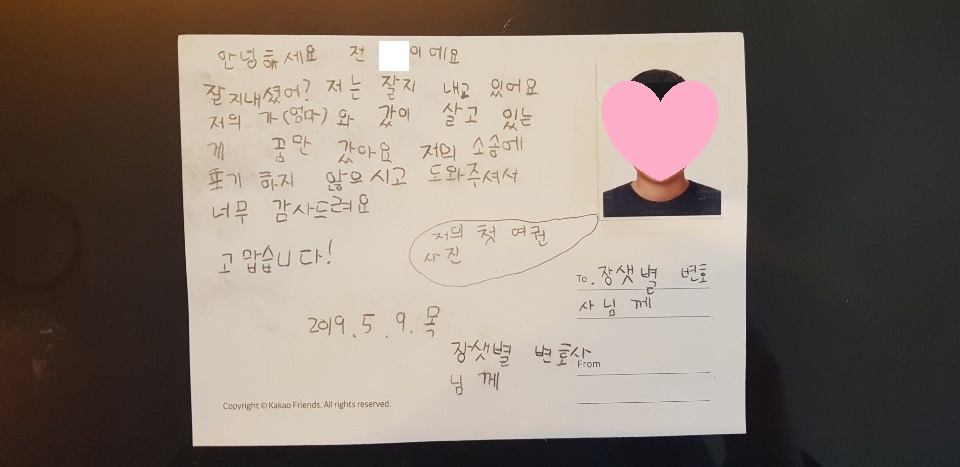 안녕하세요 전 이에요
잘지내셨어? 저는 잘지 내고 있어요
저의 가(엄마)와 갔이 살고 있는
게 꿈만 갔아요 저의 소송에
포기 하지 않으시고 도와주셔서
너무 감사드려요
고맙습니다!
저의 첫 여권
사진
To. 장샛별 변호
사님께
2019.5.9. 목
장샛별 변호사
님께
From
Copyright © Kakao Friends. All rights reserved.